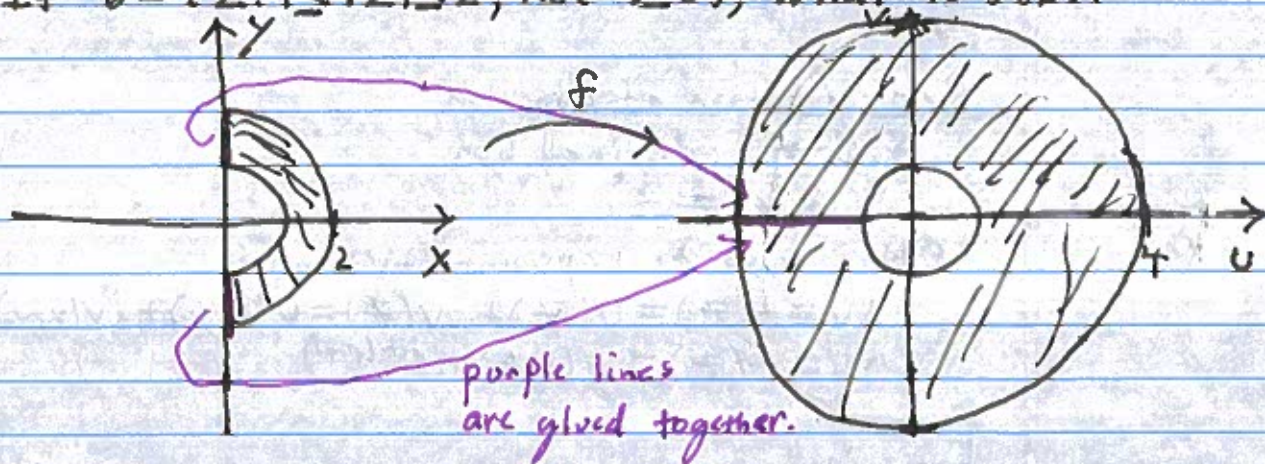 y
v
f
2
x
4
u
purple lines
are glued together.